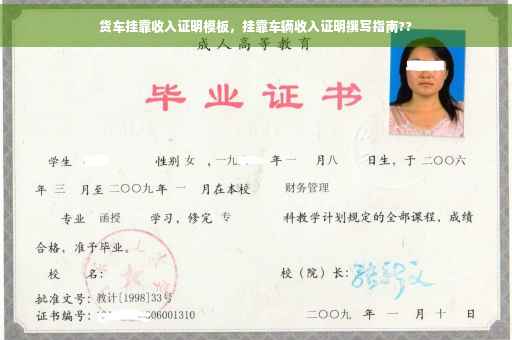 货车挂靠收入证明模板，挂靠车辆收入证明撰写指南??
成人高等教育
毕业证书
学生 性别 女 ，一九 年 一 月八 日生，于 二〇〇六
年 三 月至 二〇〇九 年 一 月在本校 财务管理
专业 函授 学习，修完 专 科教学计划规定的全部课程，成绩
合格，准予毕业。
校 名： 校（院）长：
批准文号：教计[1998]33号
证书编号： 06001310 二〇〇九 年 一 月 十 日